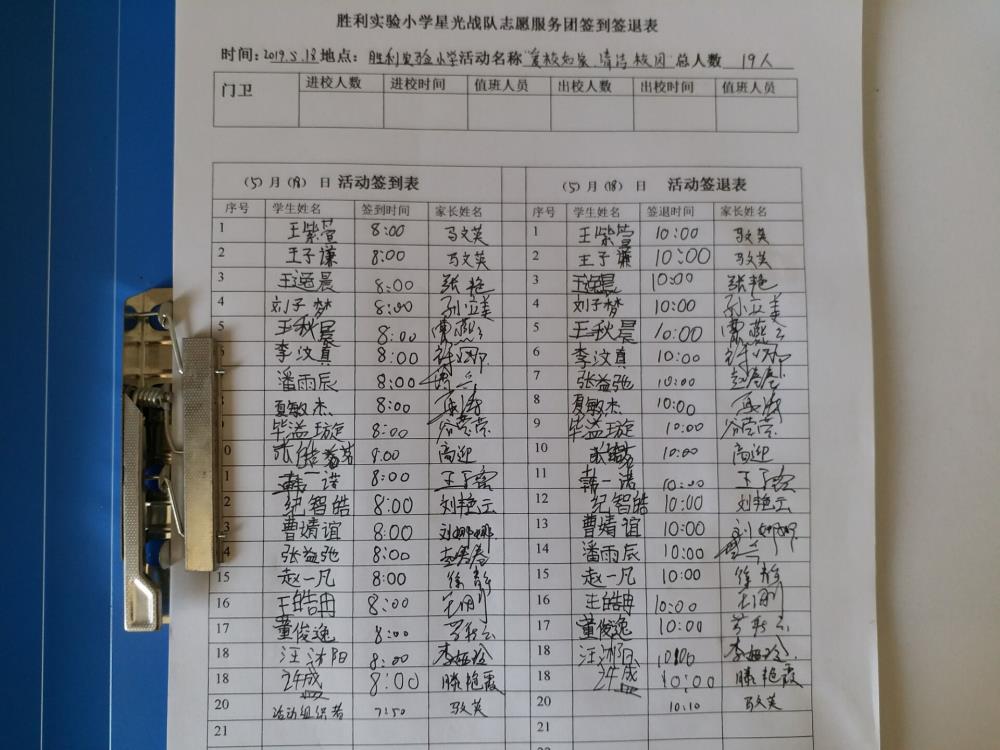 胜利实验小学星光战队志愿服务团签到签退表
时间:2019.5.18 地点:胜利实验小学 活动名称"爱校如家 清洁校园 总人数 19人
门卫 进校人数 进校时间 值班人员 出校人数 出校时间 值班人员
(5)月(18)日 活动签到表 (5)月(18)日 活动签退表
序号 学生姓名 签到时间 家长姓名 序号 学生姓名 签退时间 家长姓名
1 王紫萱 8:00 马文英 1 王紫萱 10:00 马文英
2 王子谦 8:00 马文英 2 王子谦 10:00 马文英
3 王逸晨 8:00 张艳 3 王逸晨 10:00 张艳
4 刘子梦 8:00 孙立美 4 刘子梦 10:00 孙立美
5 王秋晨 8:00 5 王秋晨 10:00
李汶真 8:00 许娜 6 李汶真 10:00 许娜
潘雨辰 8:00 7 张益弛 10:00
夏敏杰 8:00 8 夏敏杰 10:00
毕溢璇 8:00 谷荣荣 9 毕溢璇 10:00 谷荣荣
0 8:00 高迎 10 10:00 高迎
1 韩一诺 8:00 11 韩一诺 10:00
纪智皓 8:00 刘艳云 12 纪智皓 10:00 刘艳云
3 曹婧谊 8:00 刘娜娜 13 曹婧谊 10:00 刘娜娜
4 张益弛 8:00 14 潘雨辰 10:00
15 赵一凡 8:00 徐静 15 赵一凡 10:00 徐静
16 王皓冉 8:00 16 王皓冉 10:00
17 董俊逸 8:00 17 董俊逸 10:00
18 汪沐阳 8:00 李姬玲 18 10:00 李姬玲
18 8:00 滕艳霞 18 10:00 滕艳霞
20 活动组织者 7:50 马文英 20 10:10 马文英
21 21